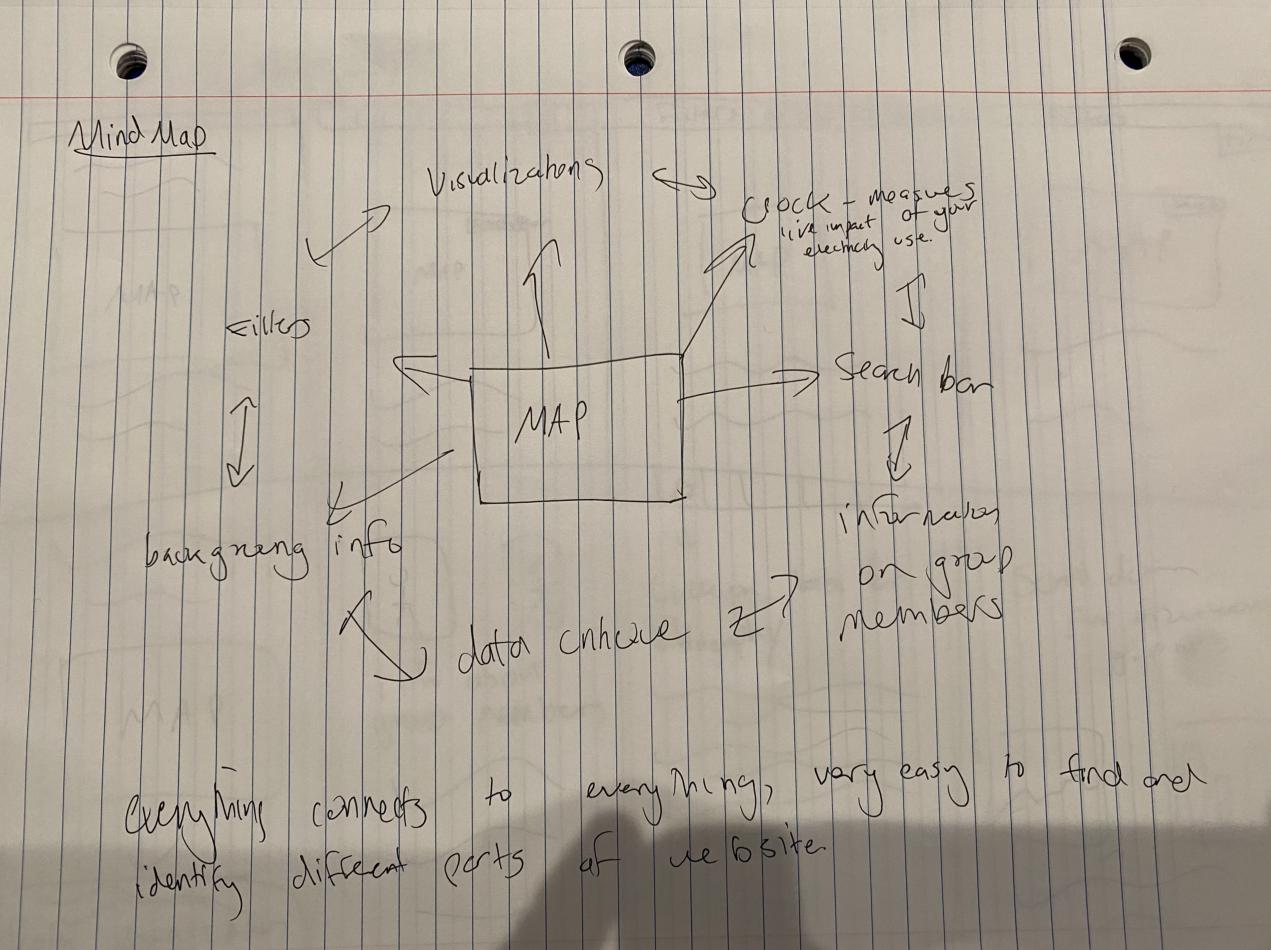 Mind Map
Visualizations
Clock - measures
live impact of your
electricity use.
Filters
MAP
Search bar
background info
information
on group
members
data
everything connects to everything, very easy to find and
identify different parts of website